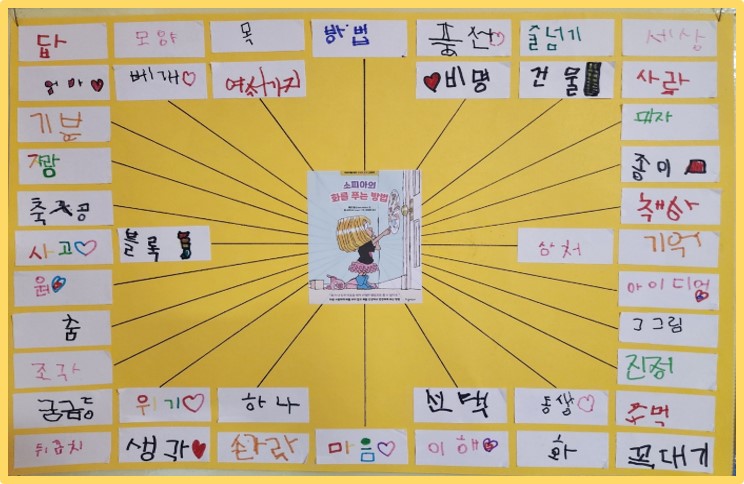 답 모양 목 방법 풍선 줄넘기 세상
엄마 베개 여러가지 비명 건물 사람
기분
자람 종이
축구공 책상
사고 블록 상처 기억
원 아이디어
춤 그림
조각 진정
궁금증 위기 하나 선택 동상 주먹
뒤꿈치 생각 손가락 마음 이해 화 꼭대기
소피아의
화를 푸는 방법